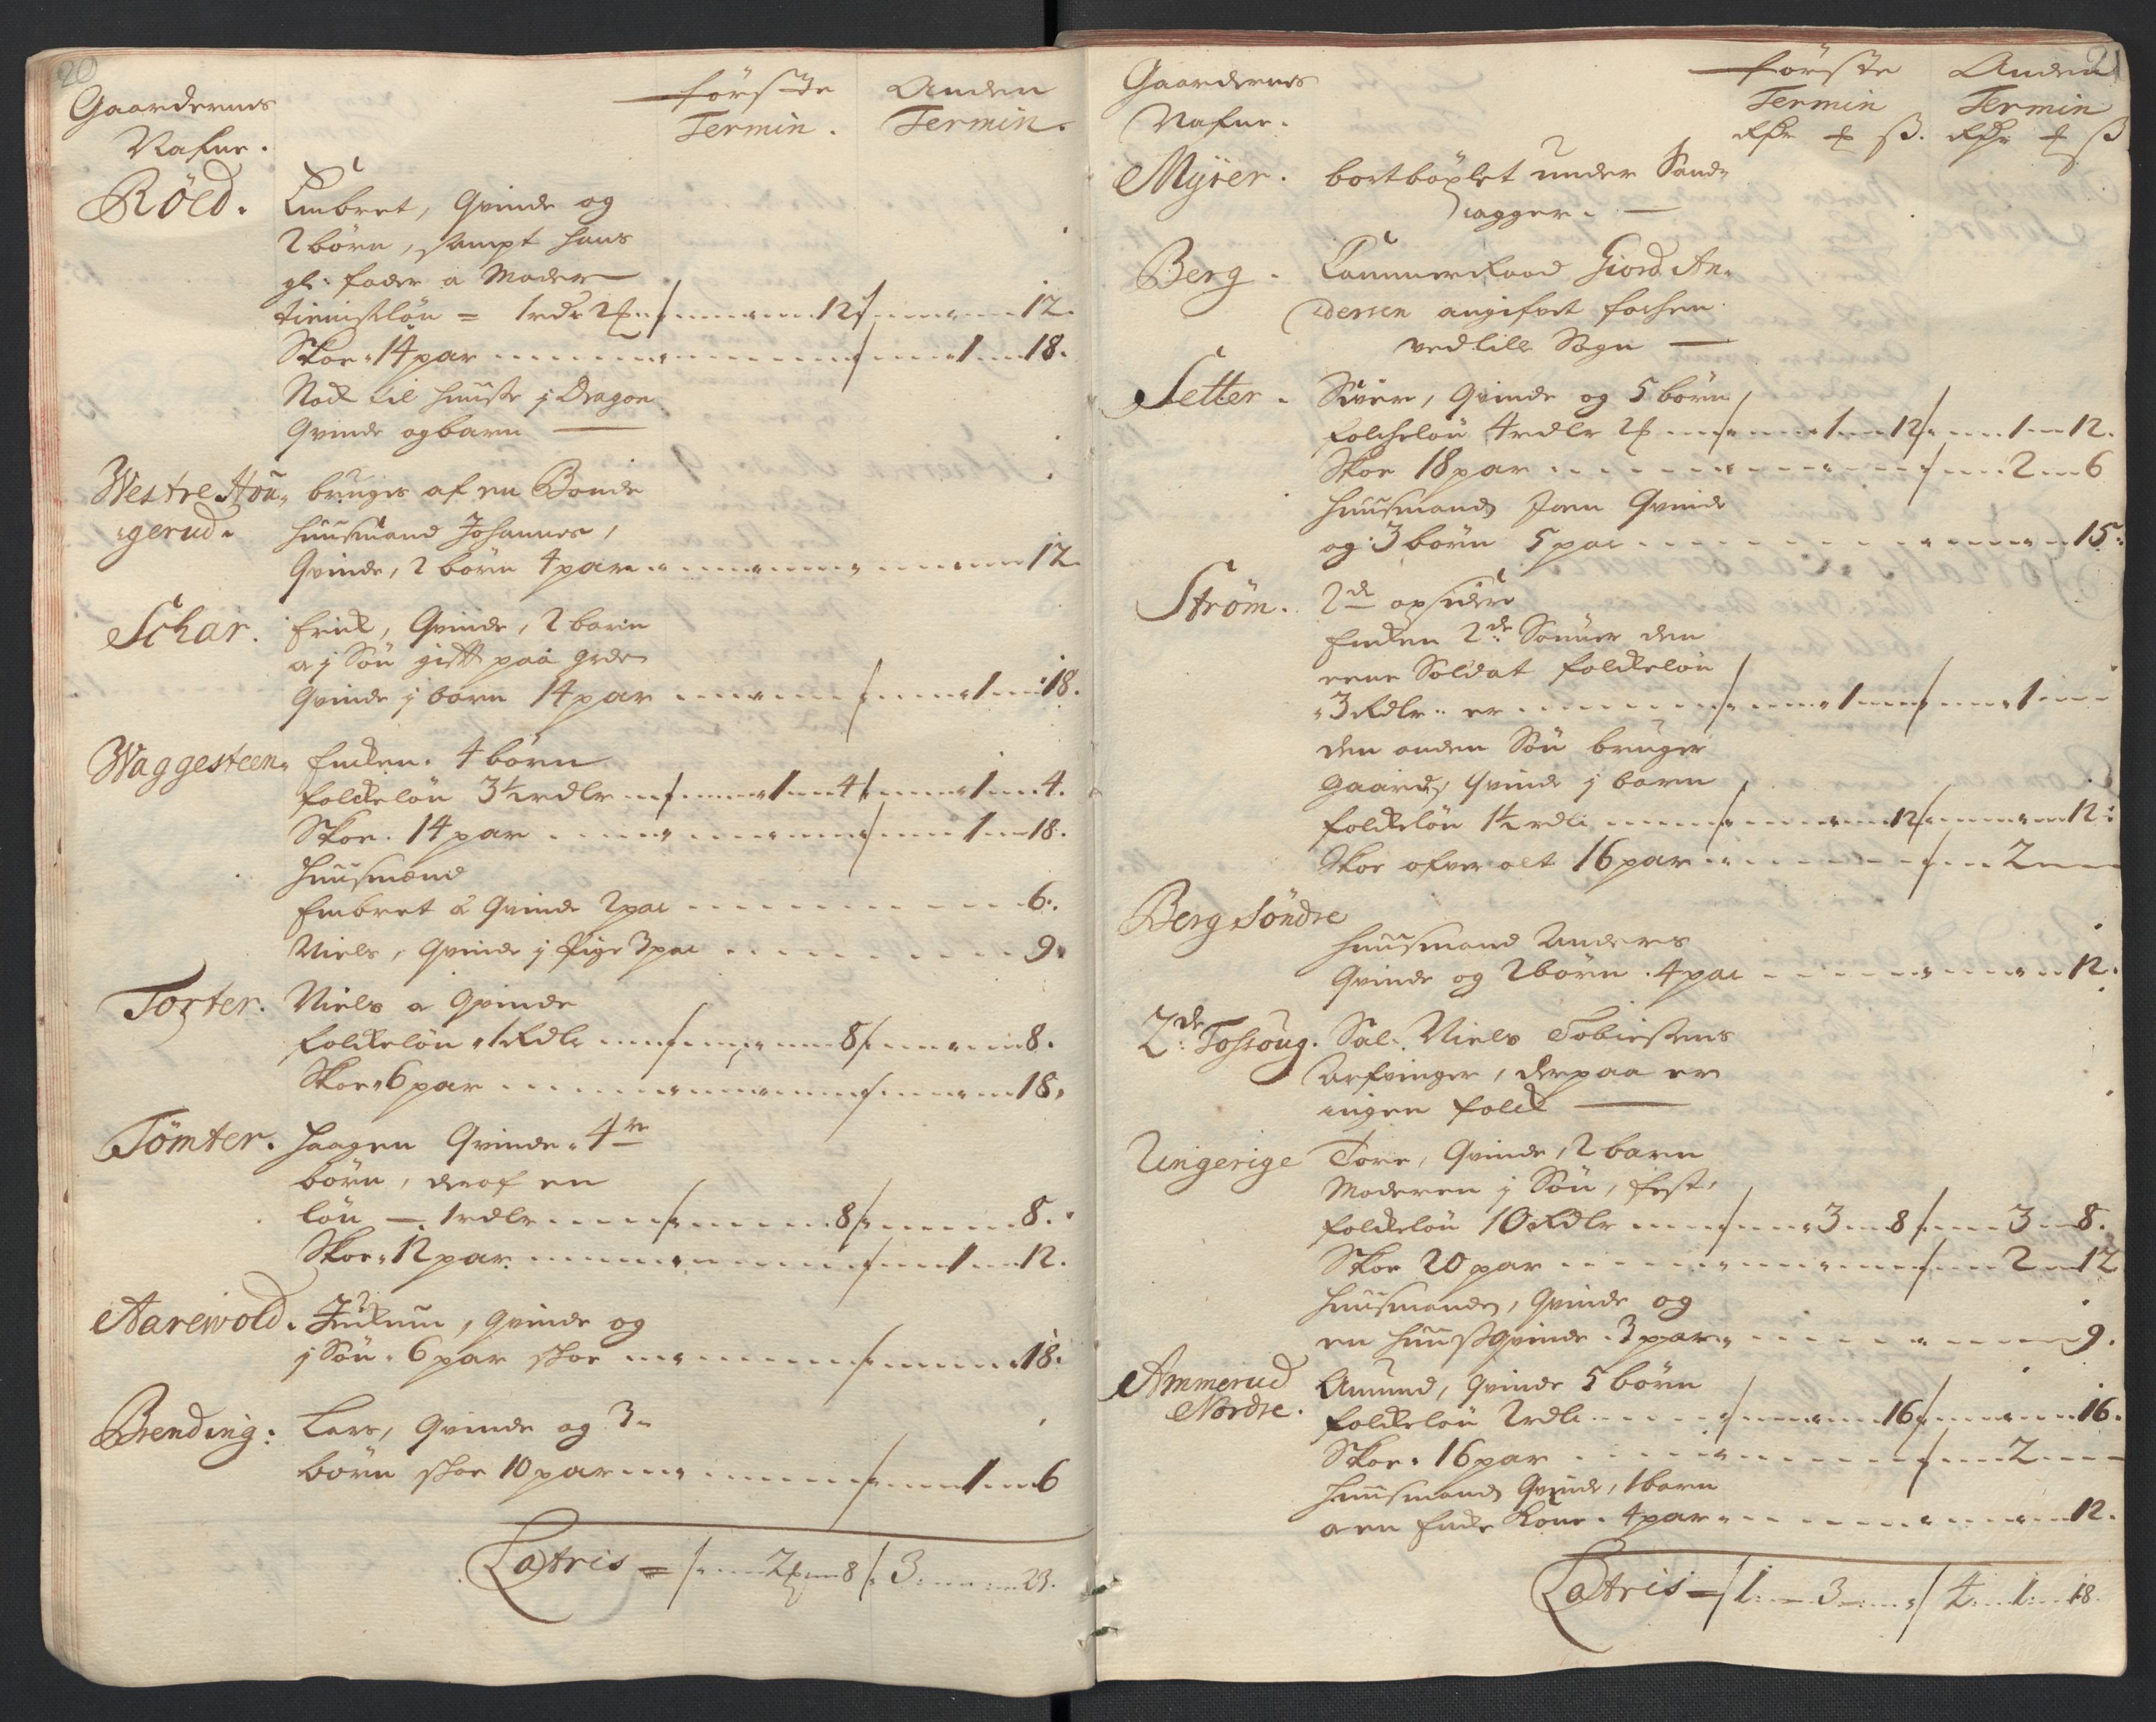 20
Gaardernes Nafne. første Termin. Anden Termin.
Röed. Embret, Qvinde og
2 börn, sampt hans
gl: fader a Moder
tienistlön = 1 rdr 2 12 12.
Skoe 14 par 1 18.
Nock til huuse j Dragon
Qvinde og barn —
Westre Hou-
gerud. bruges af en Bonde
huusmand Johannes,
Qvinde, 2 börn 4 par 12
Schar. Erick, Qvinde, 2 barn
a j Sön gift paa grden
Qvinde j barn 14 par 1 18.
Waggesteen. Encken. 4 börn
folckelön 3½ rdlr 1 4 1 4.
Skoe. 14 par 1 18.
Huusmænd
Embret a Qvinde 2 par 6.
Niels, Qvinde j Pige 3 par 9.
Torter. Niels a Qvinde
folckelön 1 Rdlr 8 8.
Skoe 6 par 18.
Tömter. Haagen Qvinde 4re
börn, deraf en
lön — 1 rdlr 8 8.
Skoe 12 par. 1 12.
Aarewold. Qvinde og
j Sön. 6 par skoe 18.
Brending: Lars, Qvinde og 3
börn skoe 10 par 1 6
Latris = 2 8 3 23.
21
Gaardernes Nafne. første Termin Anden Termin
Rdr ß. Rdr ß
Myrer. bortböxlet under Sand-
agger. —
Berg. Cammerraad Giord An-
dersen angifvet folchen
ved lille Sogn —
Setter. Siver, Qvinde og 5 börn
folchelön 4 rdlr 1 12 1 12.
Skoe 18 par 2 6
Huusmand Joen Qvinde
og 3 börn 5 par 15.
Ström. 2de opsidere
Encken 2de Sönner den
eene Soldat folckelön
3 Rdlr er 1 1
den anden Sön bruger
Gaard, Qvinde j barn
folckelön 1½ rdlr 12 12:
Skoe ofver alt 16 par 2
Berg Söndre
Huusmand Anders
Qvinde og 2 börn. 4 par 12.
2de Toshoug. Sal. Niels Tobiesens
Arfvinger, derpaa er
ingen folck —
Ungerige Tore, Qvinde, 2 barn
Moderen j Sön,
folckelön 10 Rdlr 3 8 3 8.
Skoe 20 par 2 12
Huusmand, Qvinde og
en huusqvinde 3 par 9.
Ammerud
Nordre. Amund, Qvinde 5 börn
folckelön 2 rdlr 16 16.
Skoe. 16 par 2
Huusmand Qvinde, 1 barn
a en Encke Kone. 4 par 12.
Latris = 1. 3 4. 1. 18.